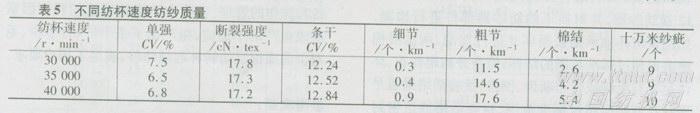 表5 不同纺杯速度纺纱质量
纺杯速度 /r·min⁻¹ 单强 CV/% 断裂强度 /cN·tex⁻¹ 条干 CV/% 细节 /个·km⁻¹ 粗节 /个·km⁻¹ 棉结 /个·km⁻¹ 十万米纱疵 /个
30 000 7.5 17.8 12.24 0.3 11.5 2.6 9
35 000 6.5 17.3 12.52 0.4 14.6 4.2 9
40 000 6.8 17.2 12.84 0.9 17.6 5.4 10